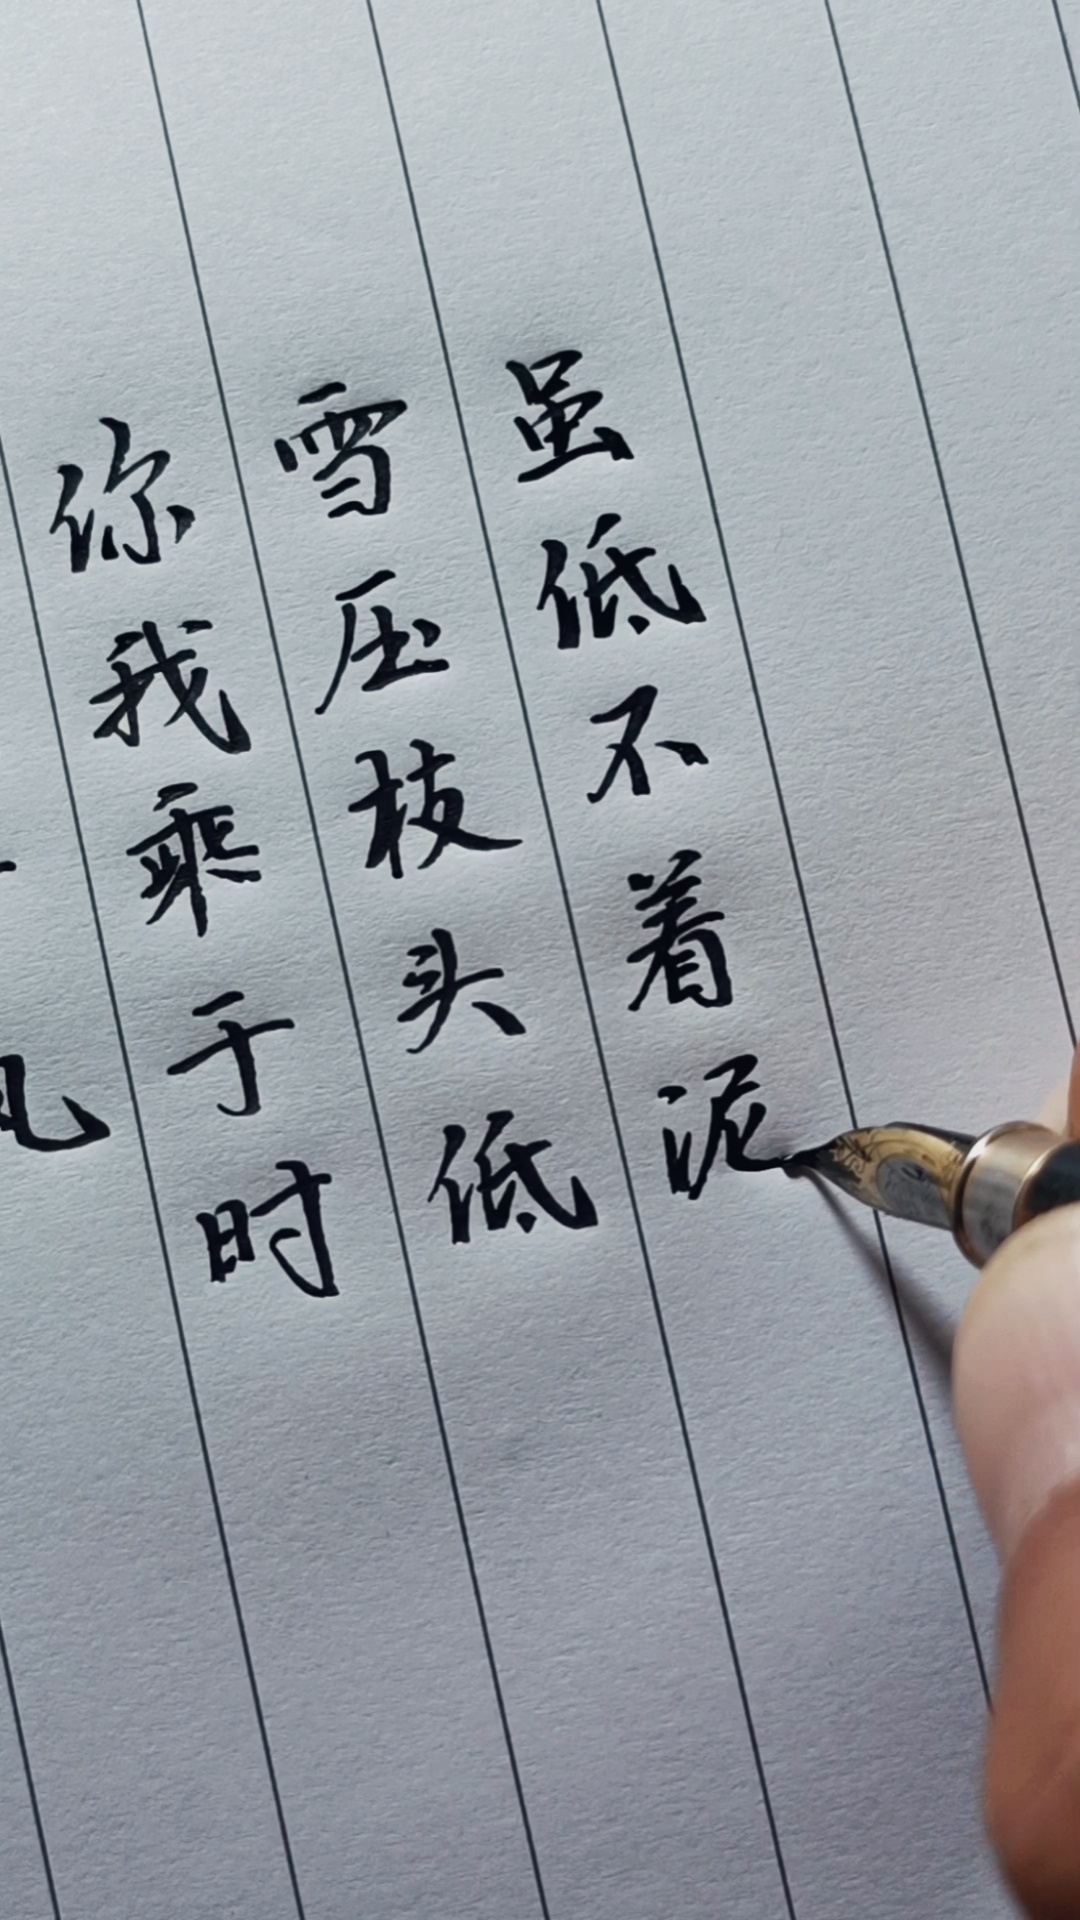 你我乘于时
雪压枝头低
虽低不着泥